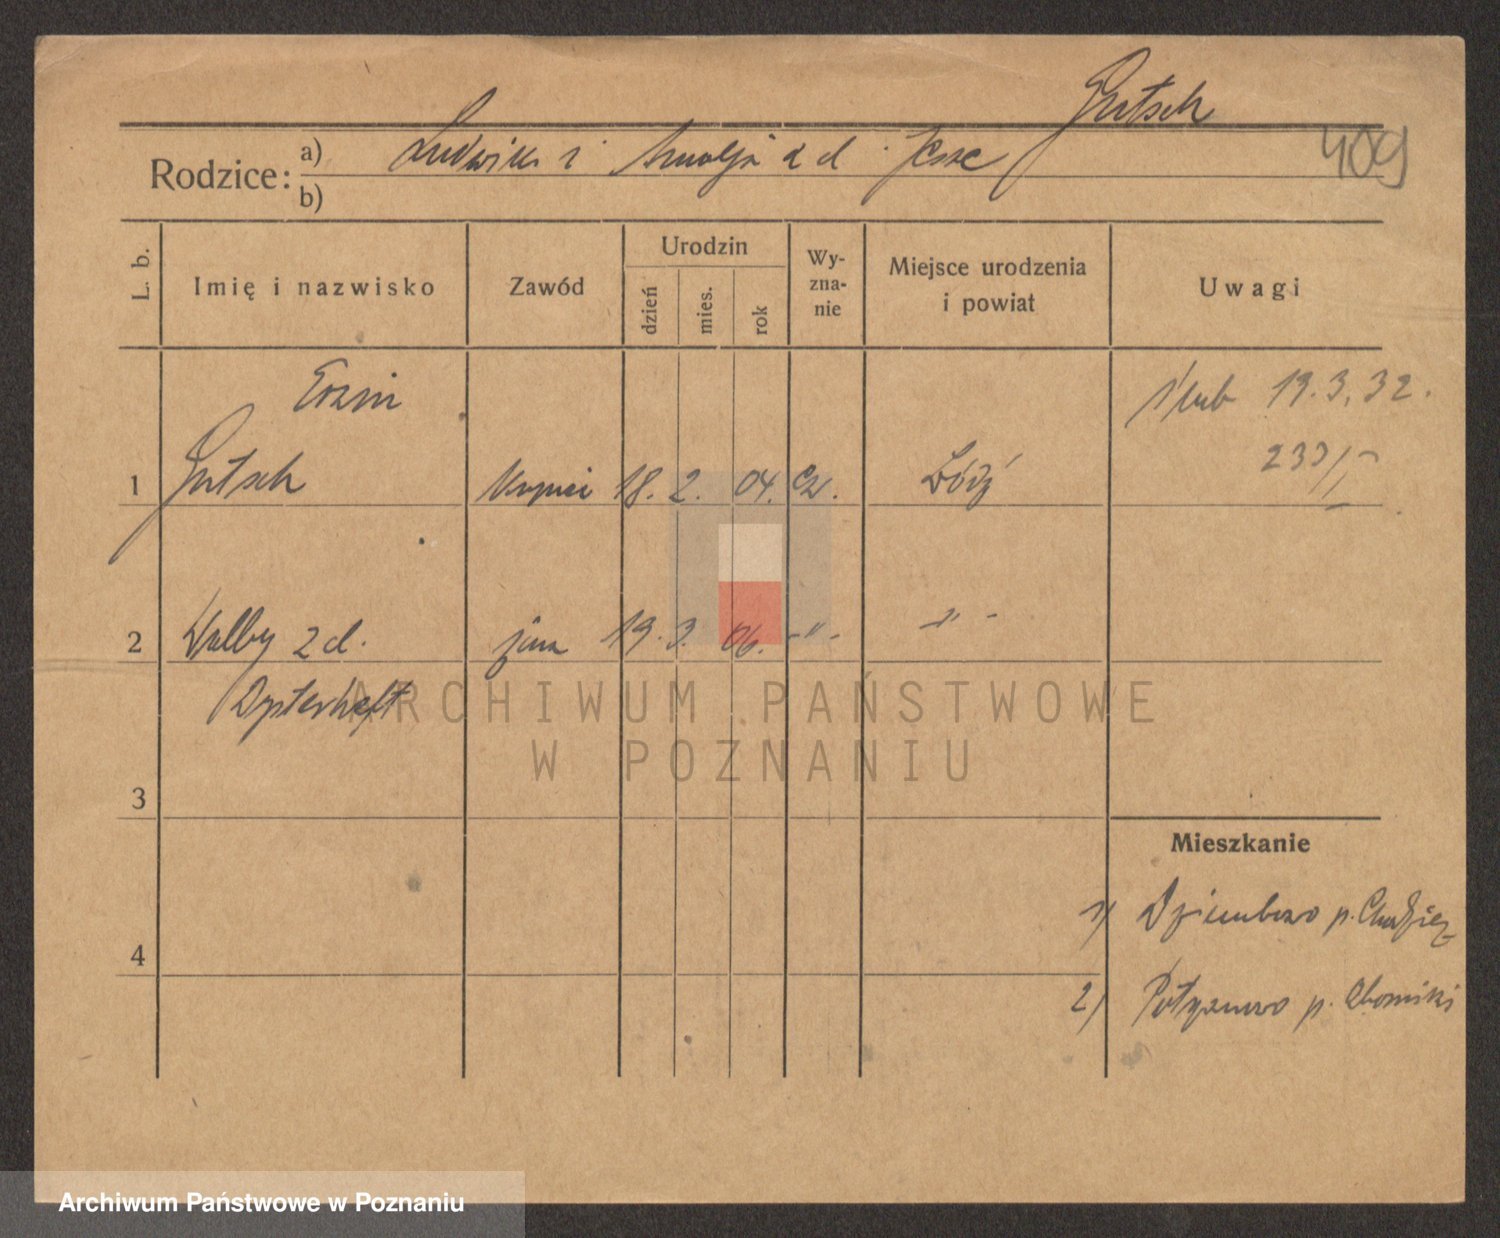 Gutsch
Rodzice: a) Ludwik i Amalja z d. Jesse
409
b)
L. b.
Imię i nazwisko
Zawód
Urodzin
dzień
mies.
rok
Wy-
zna-
nie
Miejsce urodzenia
i powiat
Uwagi
Erwin
ślub 19.3.32.
1 Gutsch kupiec 18. 2. 04. ew. Łódź
2 Wally z d. żona 19. 3. 06. -"- -"-
Dysterheft
ARCHIWUM PAŃSTWOWE
W POZNANIU
3
Mieszkanie
1) Dziembowo p. Chodzież
4
2) p.
Archiwum Państwowe w Poznaniu